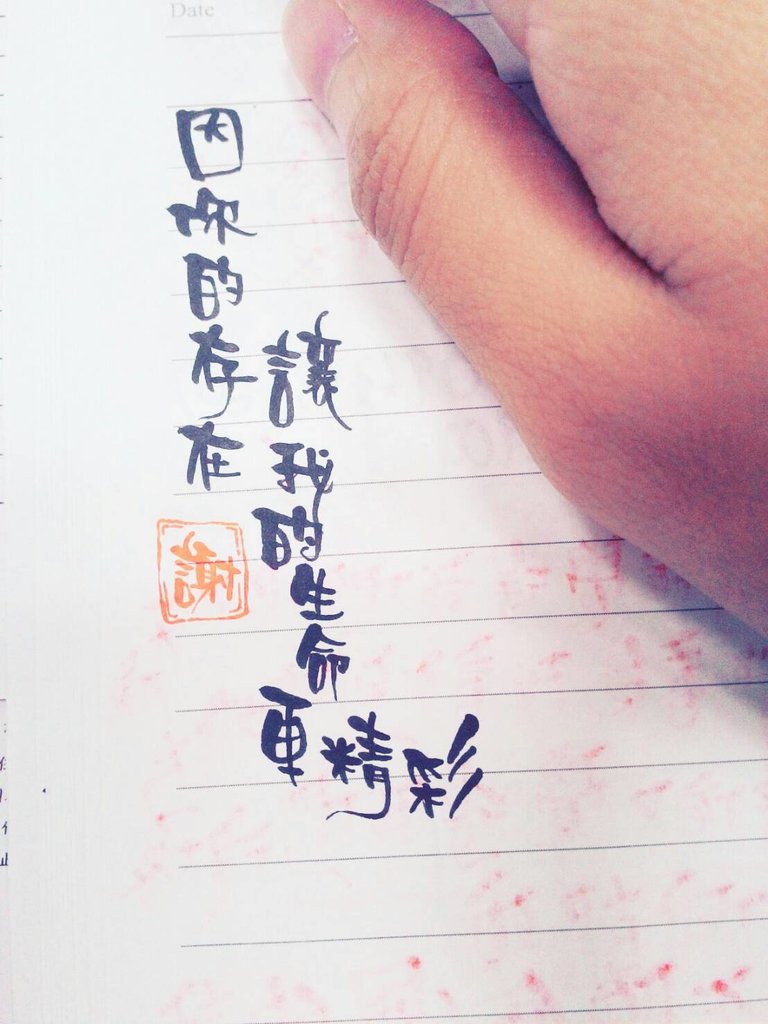 Date
因你的存在
讓我的生命
更精彩